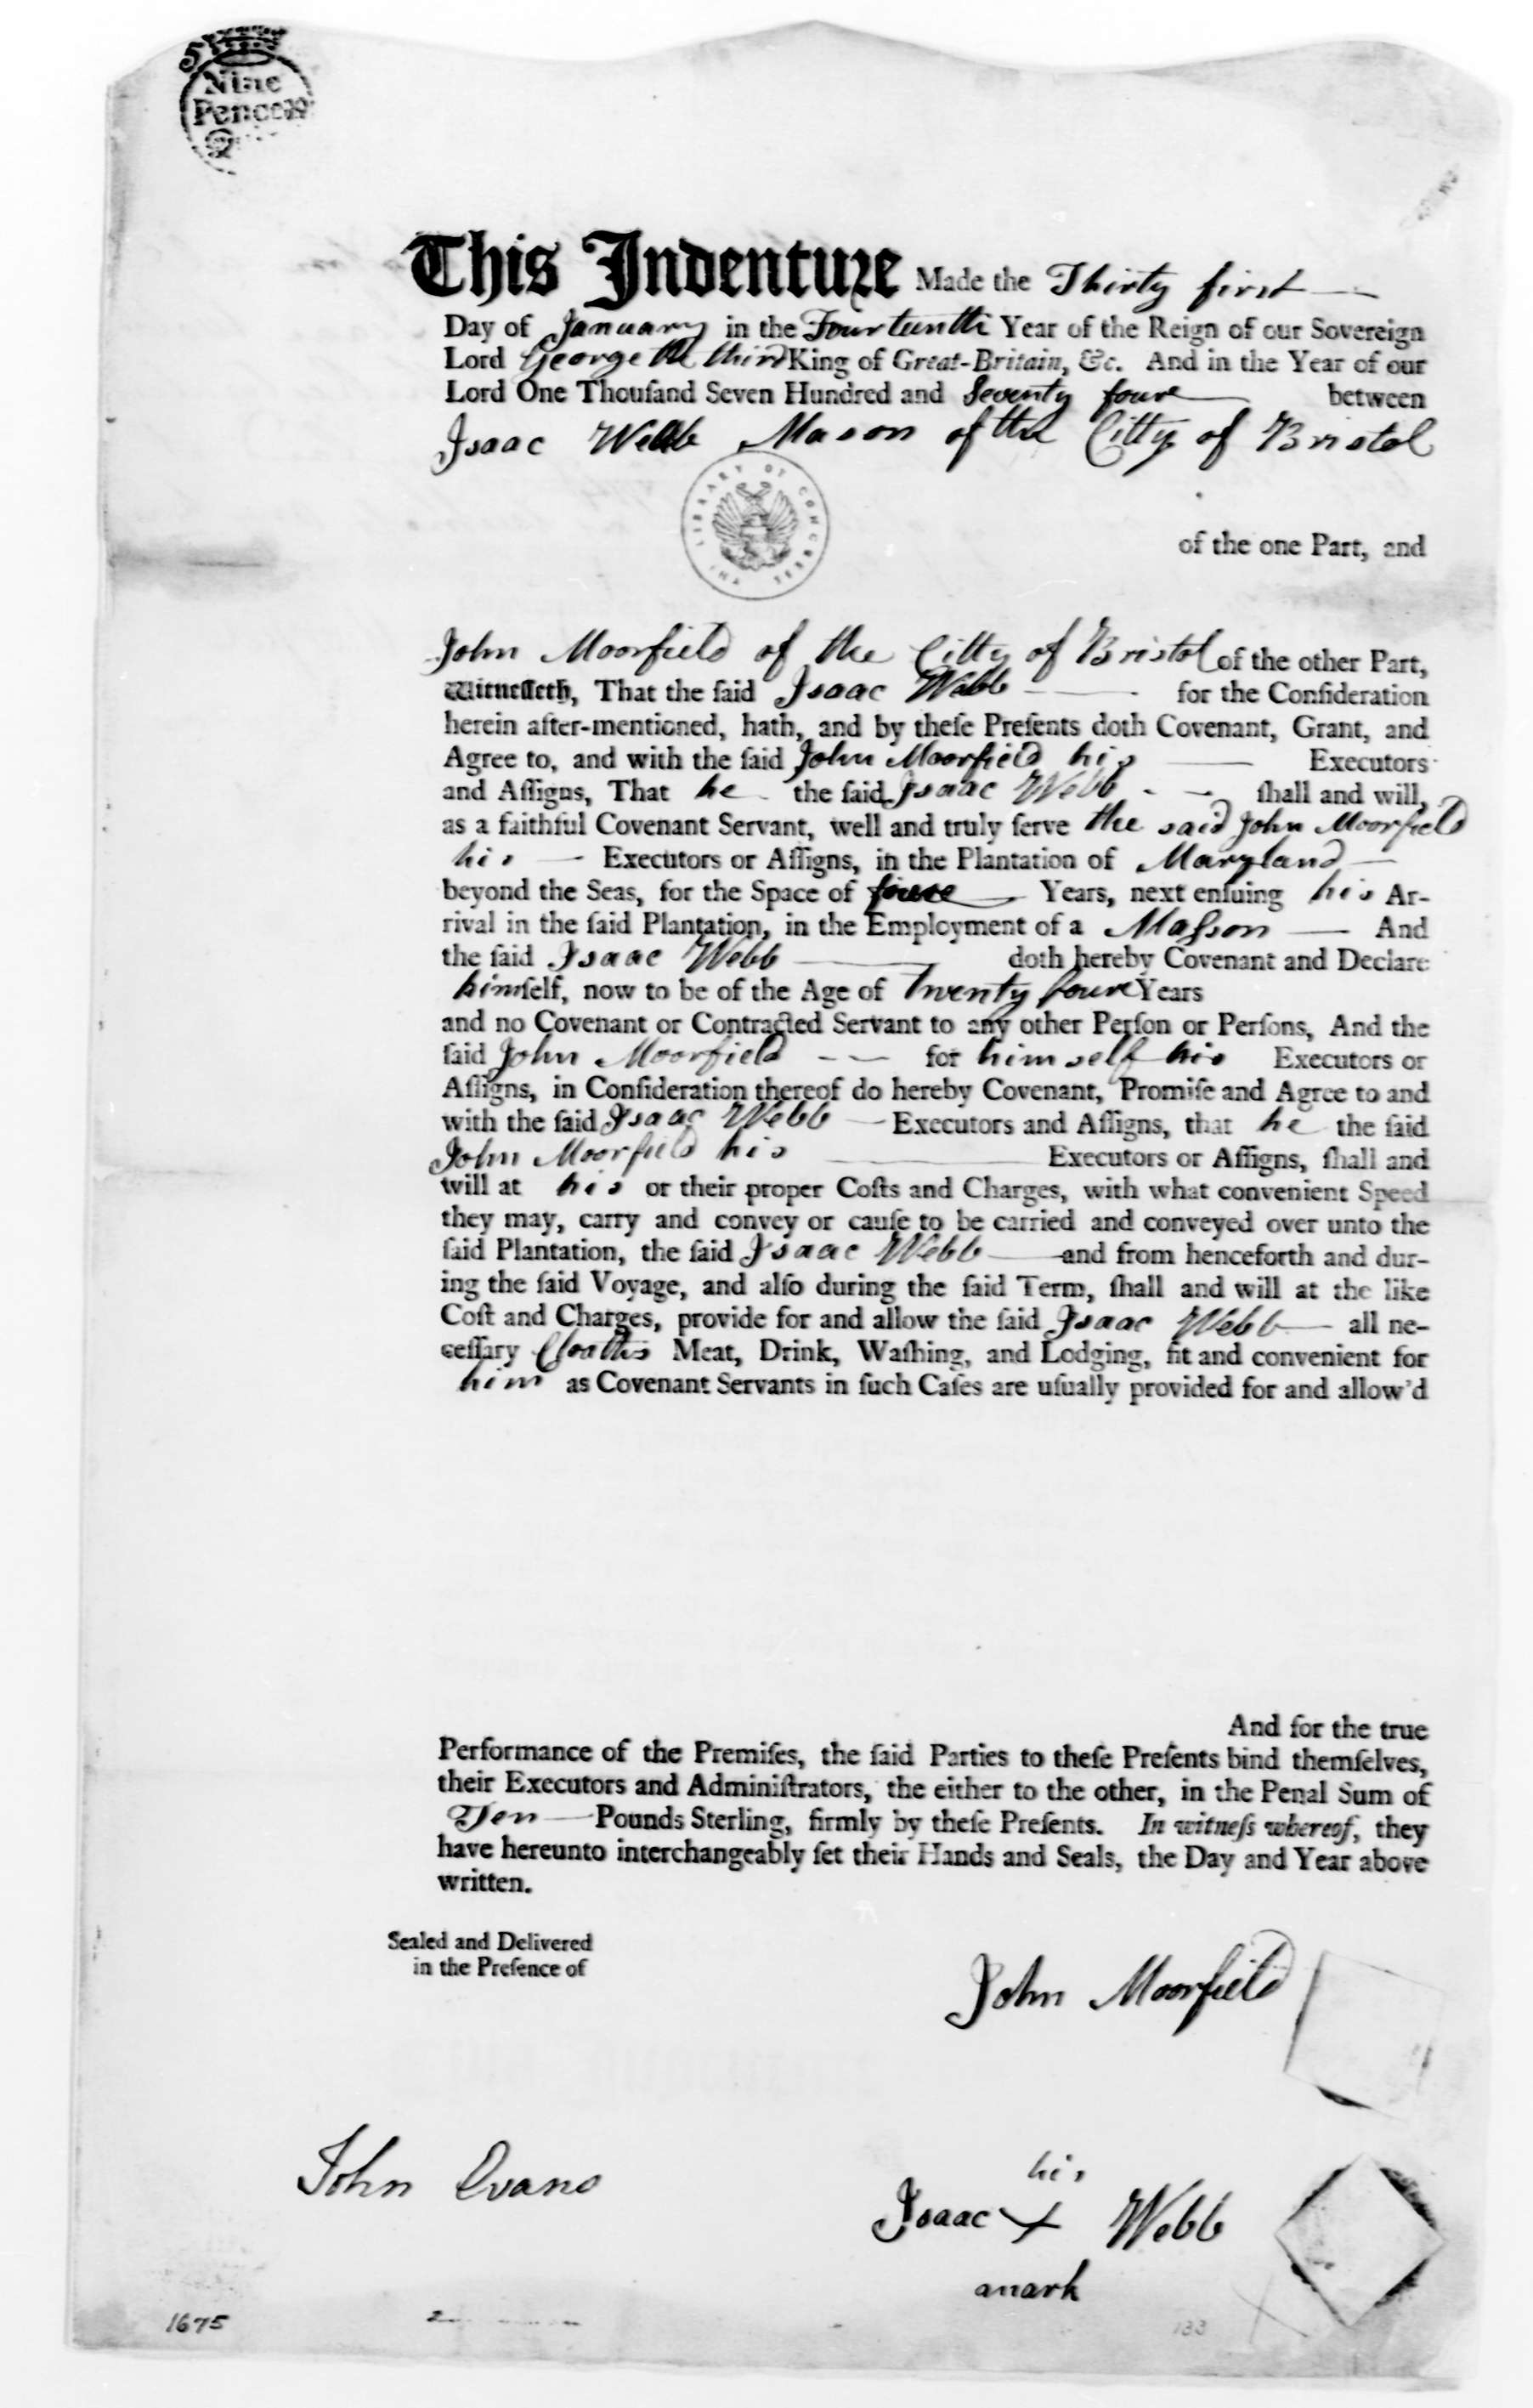 Nine
Pence
This Indenture Made the Thirty first
Day of January in the Fourteenth Year of the Reign of our Sovereign
Lord George the third King of Great-Britain, &c. And in the Year of our
Lord One Thouſand Seven Hundred and Seventy foure between
Isaac Webb Mason of the Citty of Bristol
THE LIBRARY OF CONGRESS
of the one Part, and
John Moorfield of the Citty of Bristol of the other Part,
Witneſſeth, That the ſaid Isaac Webb for the Conſideration
herein after-mentioned, hath, and by theſe Preſents doth Covenant, Grant, and
Agree to, and with the ſaid John Moorfield his Executors
and Aſſigns, That he the ſaid Isaac Webb ſhall and will,
as a faithful Covenant Servant, well and truly ſerve the said John Moorfield
his Executors or Aſſigns, in the Plantation of Maryland
beyond the Seas, for the Space of foure Years, next enſuing his Ar-
rival in the ſaid Plantation, in the Employment of a Maſson And
the ſaid Isaac Webb doth hereby Covenant and Declare
himſelf, now to be of the Age of Twenty foure Years
and no Covenant or Contracted Servant to any other Perſon or Perſons, And the
ſaid John Moorfield for himself his Executors or
Aſſigns, in Conſideration thereof do hereby Covenant, Promiſe and Agree to and
with the ſaid Isaac Webb Executors and Aſſigns, that he the ſaid
John Moorfield his Executors or Aſſigns, ſhall and
will at his or their proper Coſts and Charges, with what convenient Speed
they may, carry and convey or cauſe to be carried and conveyed over unto the
ſaid Plantation, the ſaid Isaac Webb and from henceforth and dur-
ing the ſaid Voyage, and alſo during the ſaid Term, ſhall and will at the like
Coſt and Charges, provide for and allow the ſaid Isaac Webb all ne-
ceſſary Cloaths Meat, Drink, Waſhing, and Lodging, fit and convenient for
him as Covenant Servants in ſuch Caſes are uſually provided for and allow'd
And for the true
Performance of the Premiſes, the ſaid Parties to theſe Preſents bind themſelves,
their Executors and Adminiſtrators, the either to the other, in the Penal Sum of
Ten Pounds Sterling, firmly by theſe Preſents. In witneſs whereof, they
have hereunto interchangeably ſet their Hands and Seals, the Day and Year above
written.
Sealed and Delivered
in the Preſence of
John Moorfield
John Evans
his
Isaac X Webb
mark
1675
133